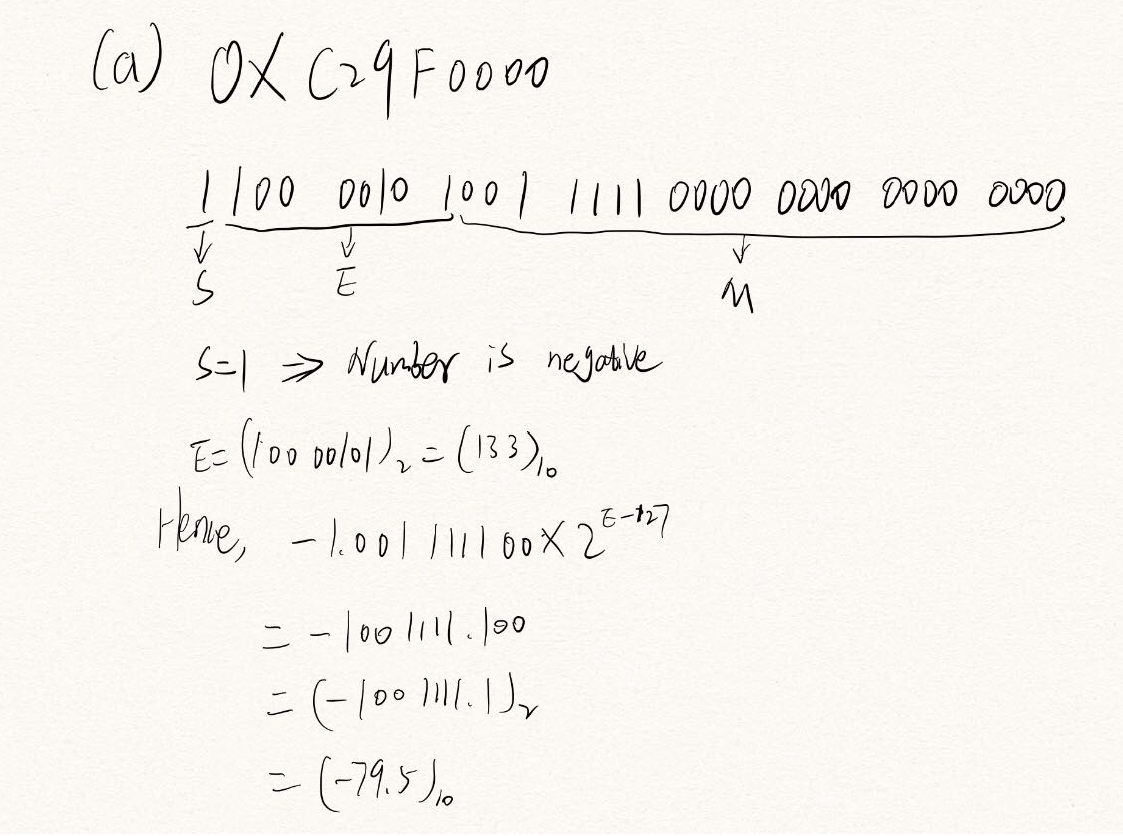 (a) 0X C29F0000
1 100 0010 1001 1111 0000 0000 0000 0000
S E M
S=1 ⇒ Number is negative
E=(100 00101)₂ = (133)₁₀
Hence, -1.001 1111 00 X 2^(E-127)
= -1001111.100
= (-1001111.1)₂
= (-79.5)₁₀